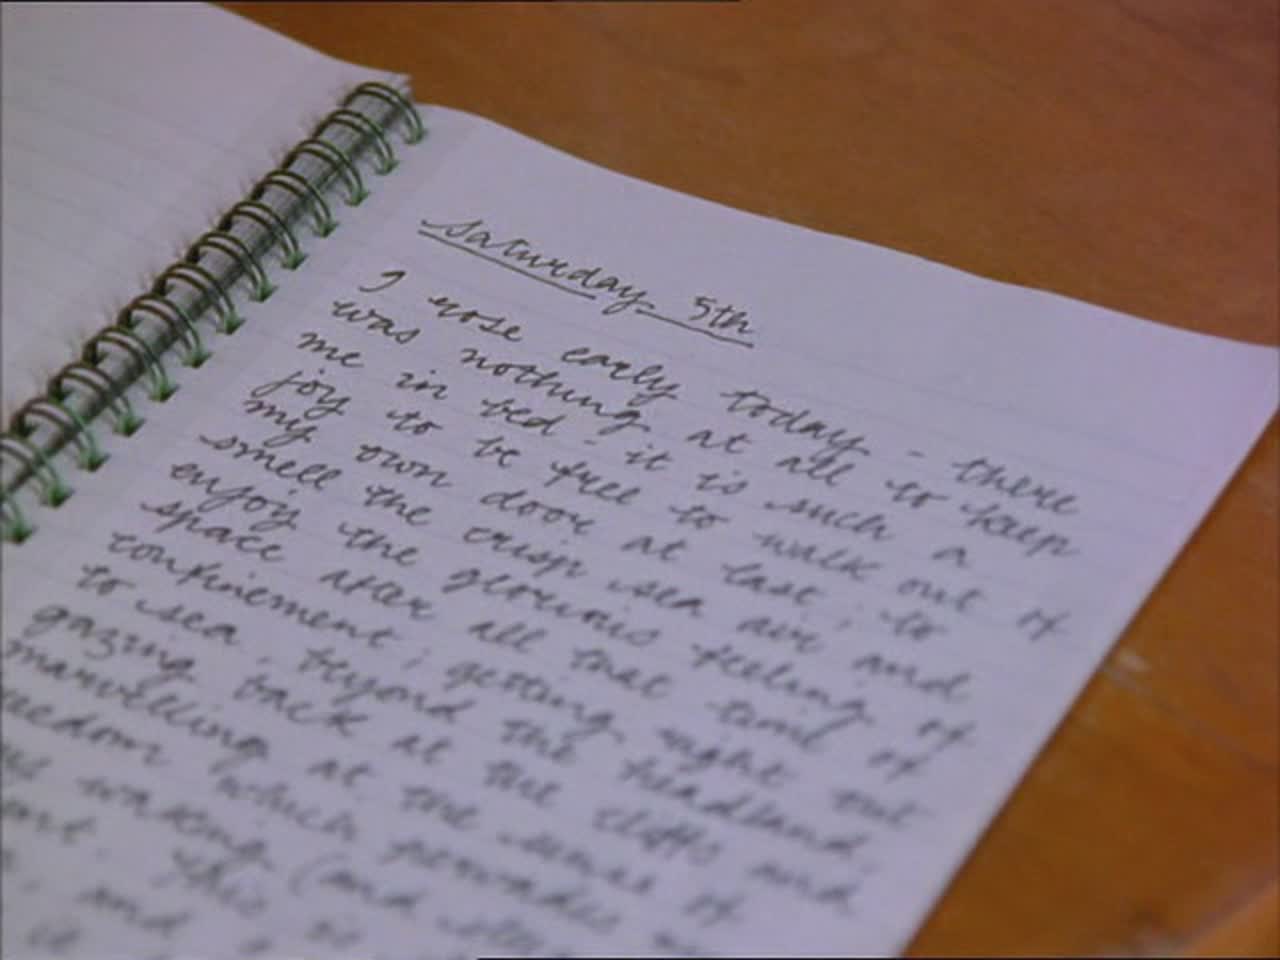 Saturday 5th
I rose early today - there
was nothing at all to keep
me in bed - it is such a
joy to be free to walk out of
my own door at last; to
smell the crisp sea air and
enjoy the glorious feeling of
space after all that time of
confinement; getting right out
to sea, beyond the headland,
gazing back at the cliffs and
marvelling at the sense of
which pervades
waking (and
This is
and